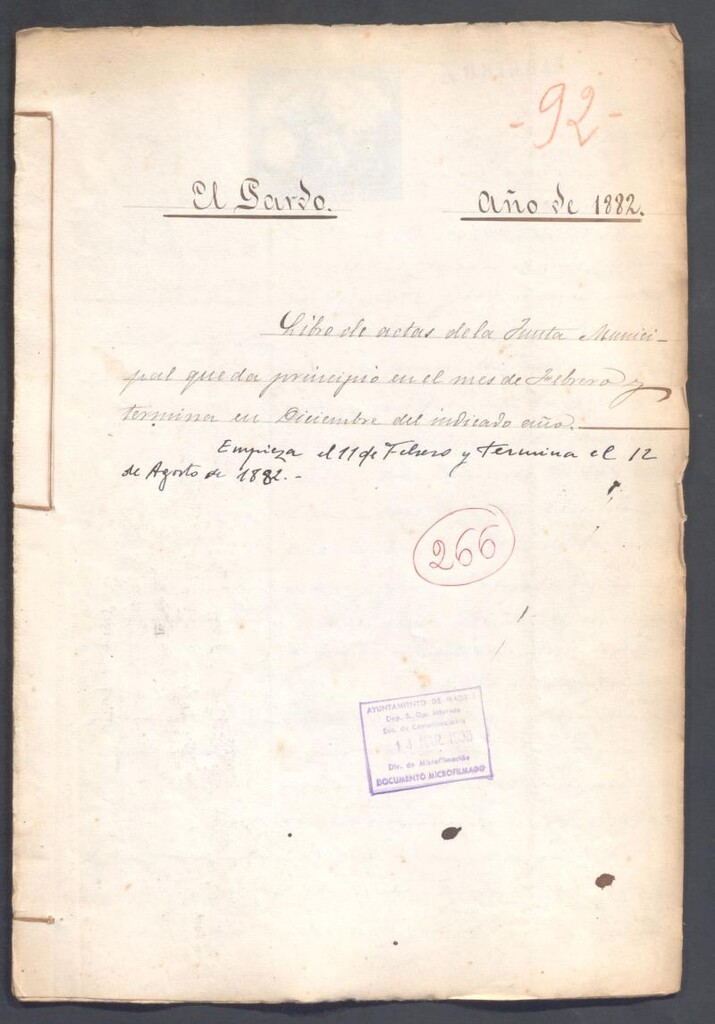 -92-
El Pardo. Año de 1882.
Libro de actas de la Junta Munici-
pal que da principio en el mes de Febrero y
termina en Diciembre del indicado año.
Empieza el 11 de Febrero y termina el 12
de Agosto de 1882.-
266
AYUNTAMIENTO DE MADRID
Dep. S.
Sec. de
Div. de Microfilmación
DOCUMENTO MICROFILMADO